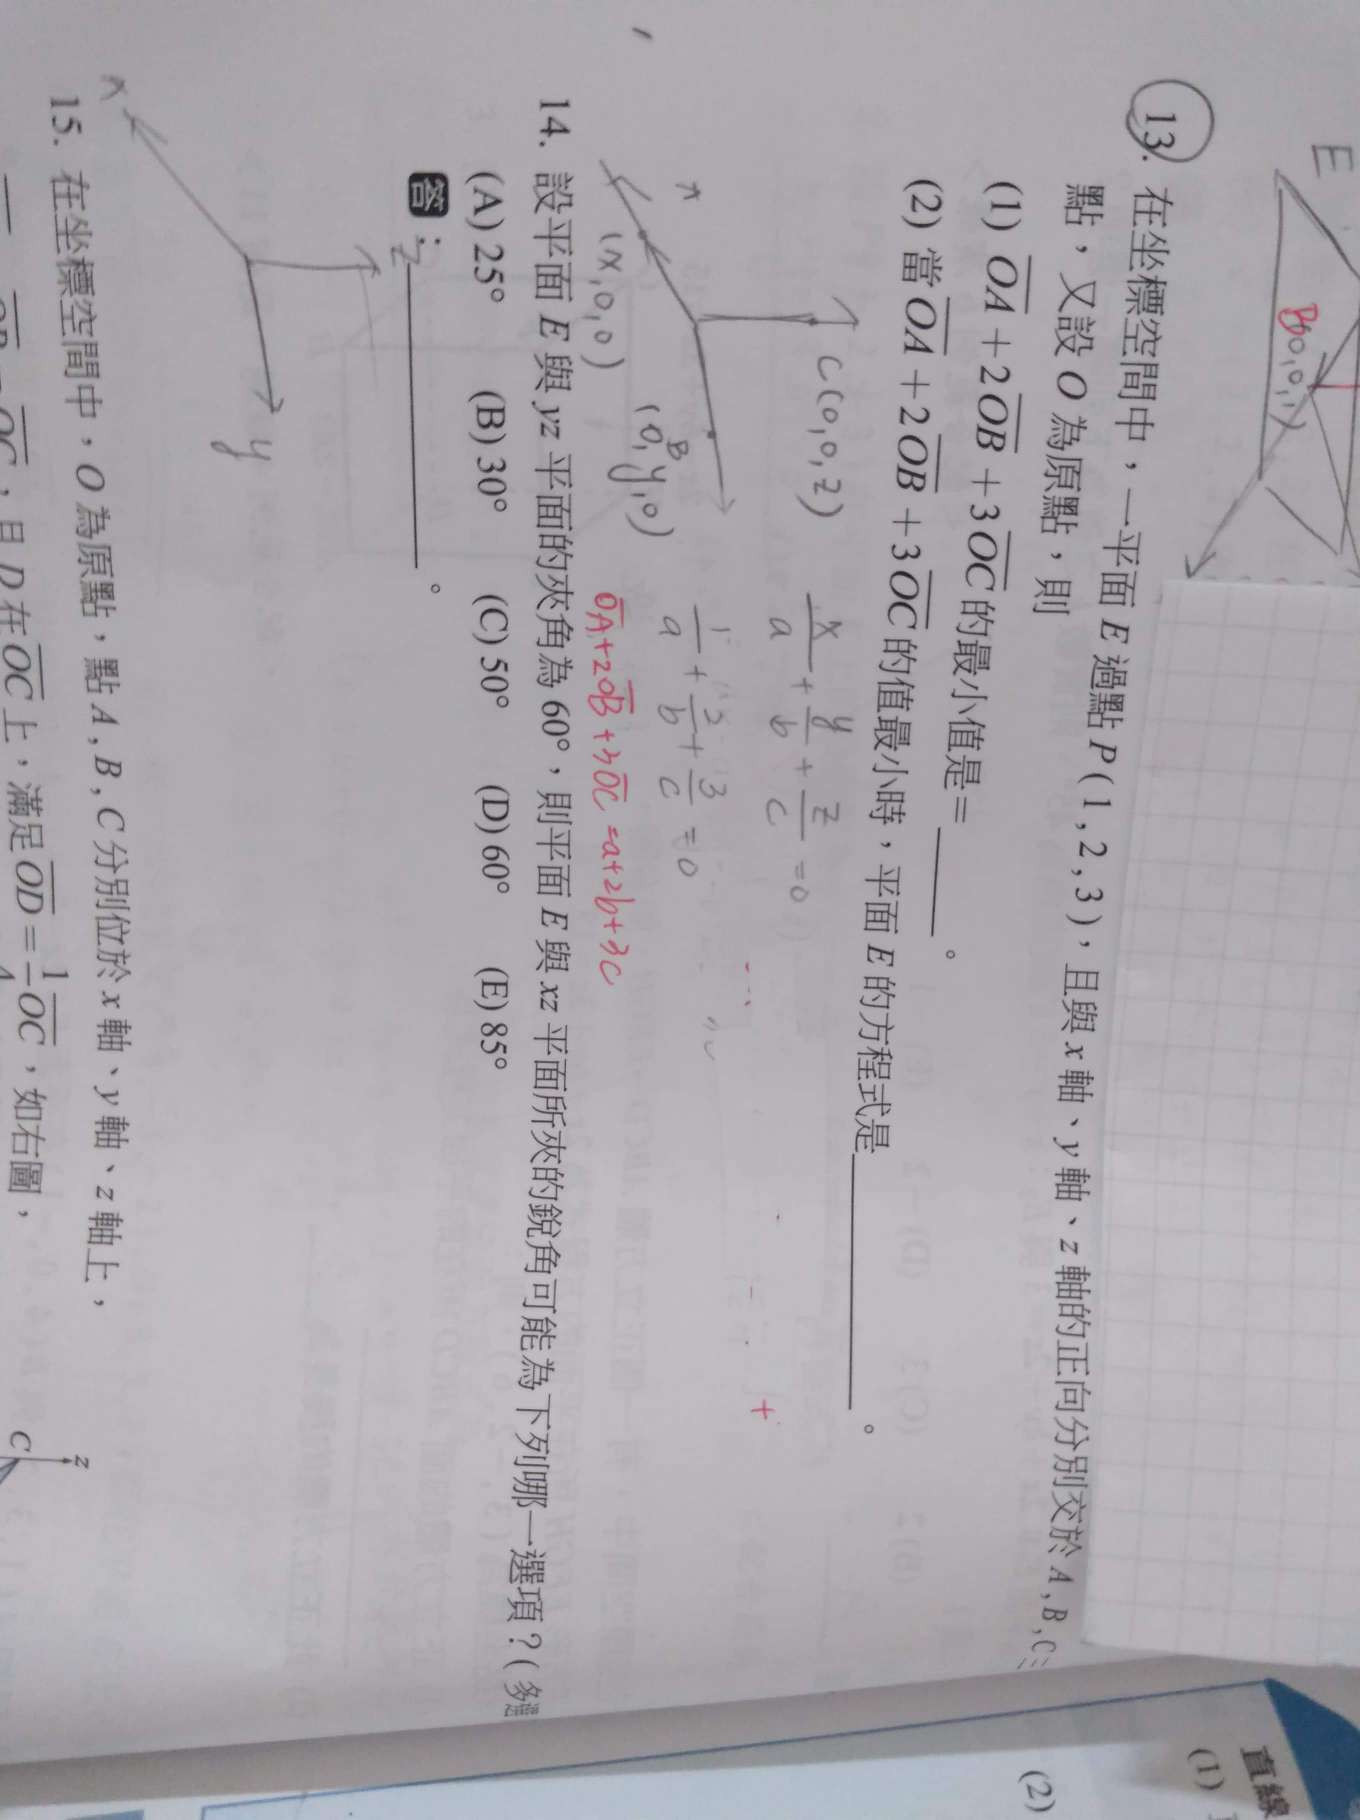 E
B(0,0,1)
13. 在坐標空間中,一平面 E 過點 P(1,2,3),且與 x 軸、y 軸、z 軸的正向分別交於 A,B,C三
點,又設 O 為原點,則
(1) OA + 2OB + 3OC 的最小值是=______。
(2) 當 OA + 2OB + 3OC 的值最小時,平面 E 的方程式是______。
x
C(0,0,z)
(x,0,0)
B
(0,y,0)
x/a + y/b + z/c = 0
1/a + 2/b + 3/c = 0
OA+2OB+3OC=a+2b+3c
14. 設平面 E 與 yz 平面的夾角為 60°,則平面 E 與 xz 平面所夾的銳角可能為下列哪一選項?(多選
(A) 25° (B) 30° (C) 50° (D) 60° (E) 85°
答:______。
z
y
x
15. 在坐標空間中,O 為原點,點 A,B,C 分別位於 x 軸、y 軸、z 軸上,
OC,且 D 在 OC 上,滿足 OD = 1/4 OC,如右圖,
z
C
直線
(1)
(2)